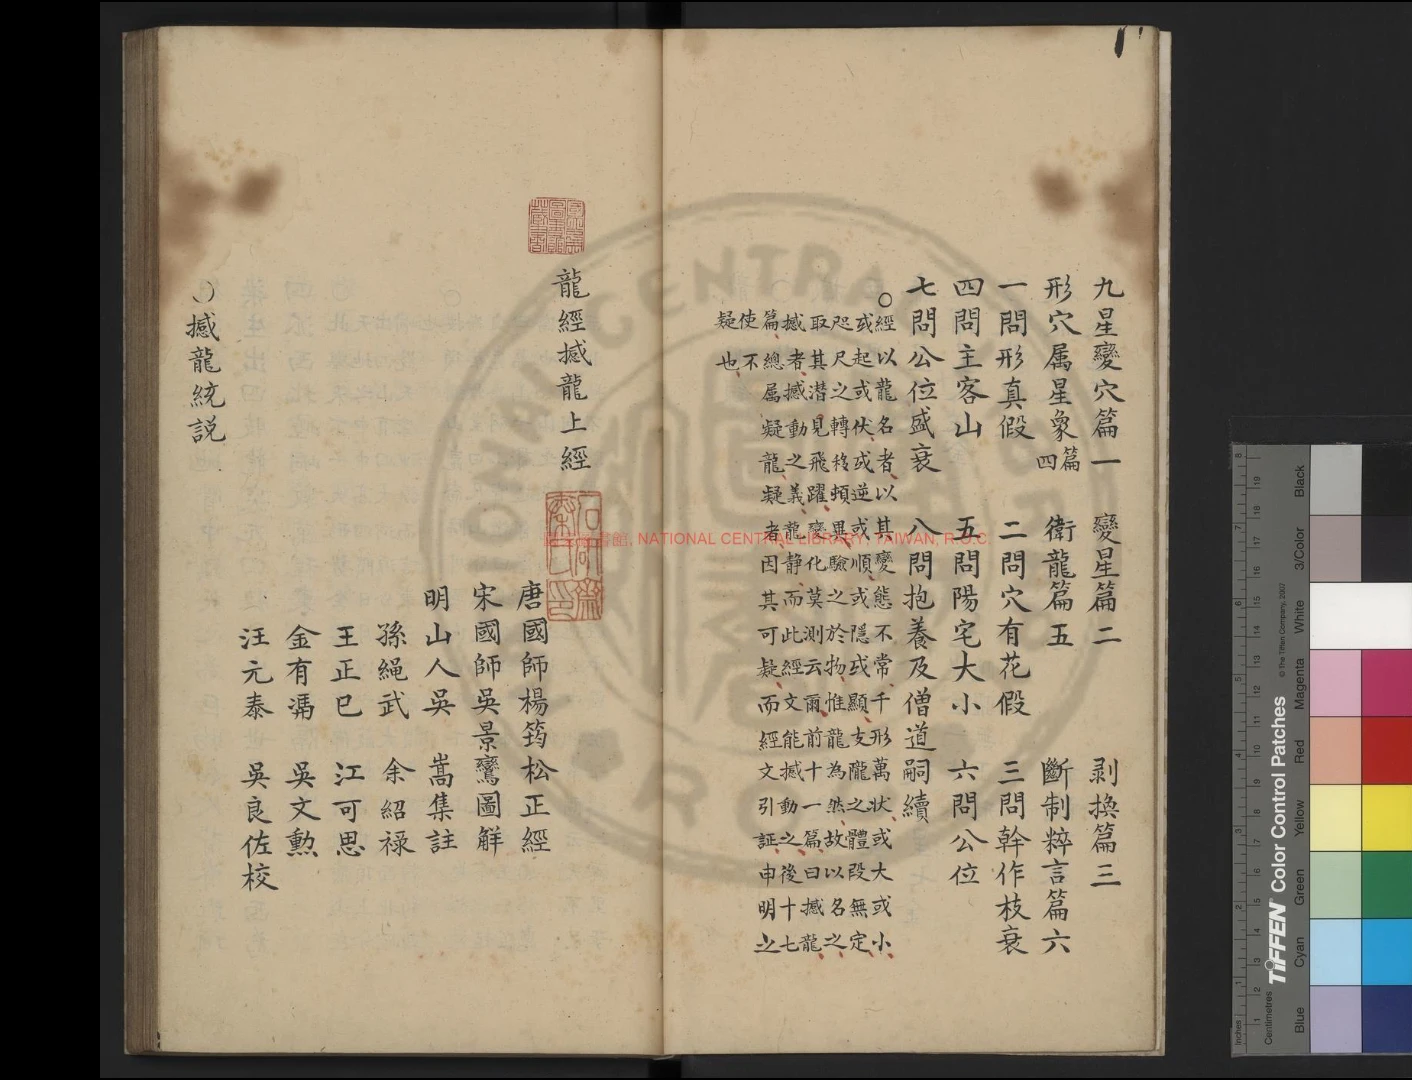 九星變穴篇一 變星篇二 剥換篇三
形穴属星象四篇 衛龍篇五 斷制粹言篇六
一問形真假 二問穴有花假 三問幹作枝衰
四問主客山 五問陽宅大小 六問公位
七問公位盛衰 八問抱養及僧道嗣續
○經以龍名者以其變態不常千形萬状或大或小
或起或伏或逆或順或隱或顯支隴之體段無定
咫尺之轉移頓異驗之於物惟龍為然故以名之
取其潜見飛躍變化莫測云爾前十一篇曰撼龍
撼者撼動之義龍静而此經文能撼動之後十七
篇總属疑龍疑者因其可疑而經文引証申明之
使不
疑也
龍經撼龍上經
唐國師楊筠松正經
宋國師吳景鸞圖解
明山人吳 嵩集註
孫繩武 余紹禄
王正巳 江可思
金有溤 吳文勲
汪元泰 吳良佐校
○撼龍統説
NATIONAL CENTRAL LIBRARY, TAIWAN, R.O.C.
TIFFEN Color Control Patches
© The Tiffen Company, 2007
Blue Cyan Green Yellow Red Magenta White 3/Color Black
Inches
Centimetres